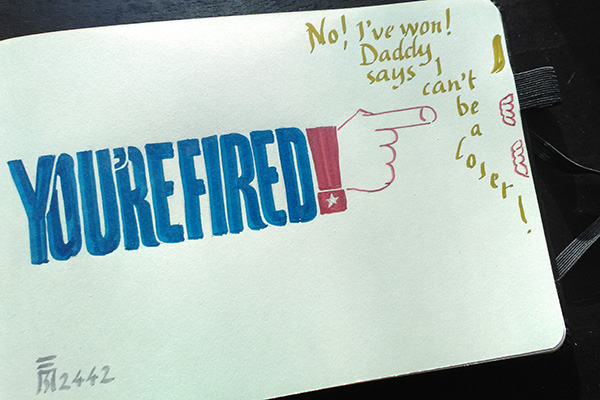 No! I've won!
Daddy
says I
can't
be
a
loser!
YOU'RE FIRED!
2442